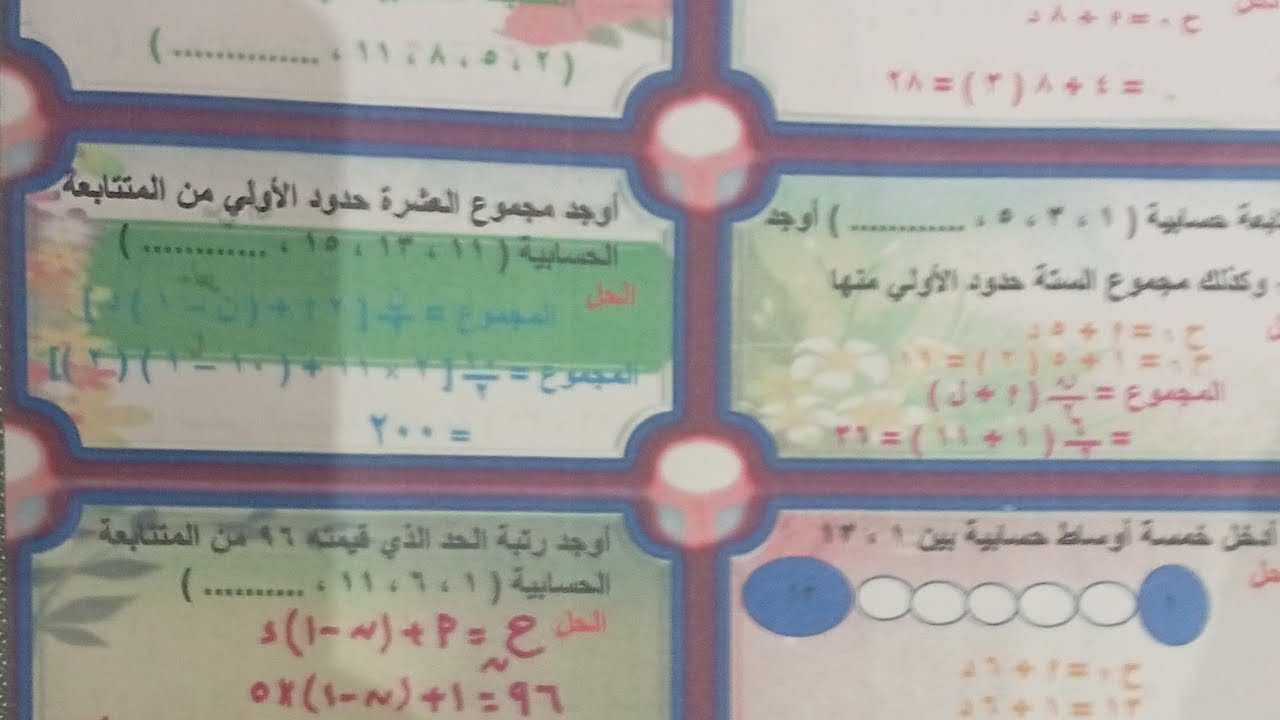 ح٠ = ٢ + ٨ د
= ٤ + ٨ ( ٣ ) = ٢٨
( ٢ ، ٥ ، ٨ ، ١١ ، ............. )
حسابية ( ١ ، ٣ ، ٥ ، ............ ) أوجد
وكذلك مجموع الستة حدود الأولي منها
ح٠ = ٢ + ٥ د
ح٠ = ١ + ٥ ( ٢ ) = ١١
المجموع = ن/٢ ( ٢ + ل )
= ٦/٢ ( ١ + ١١ ) = ٣٦
أوجد مجموع العشرة حدود الأولي من المتتابعة
الحسابية ( ١١ ، ١٣ ، ١٥ ، ............ )
الحل
المجموع = ن/٢ [ ٢ ٢ + ( ن − ١ ) د ]
المجموع = ١٠/٢ [ ٢ × ١١ + ( ١٠ − ١ ) ( ٢ ) ]
= ٢٠٠
أدخل خمسة أوساط حسابية بين ١ ، ١٣
ح٠ = ٢ + ٦ د
١٣ = ١ + ٦ د
أوجد رتبة الحد الذي قيمته ٩٦ من المتتابعة
الحسابية ( ١ ، ٦ ، ١١ ، ........... )
الحل ح ن = ٢ + (ن − ١) د
٩٦ = ١ + (ن − ١) × ٥